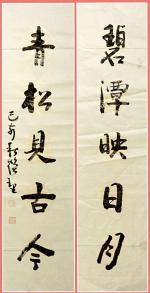 碧潭映日月
青松見古今